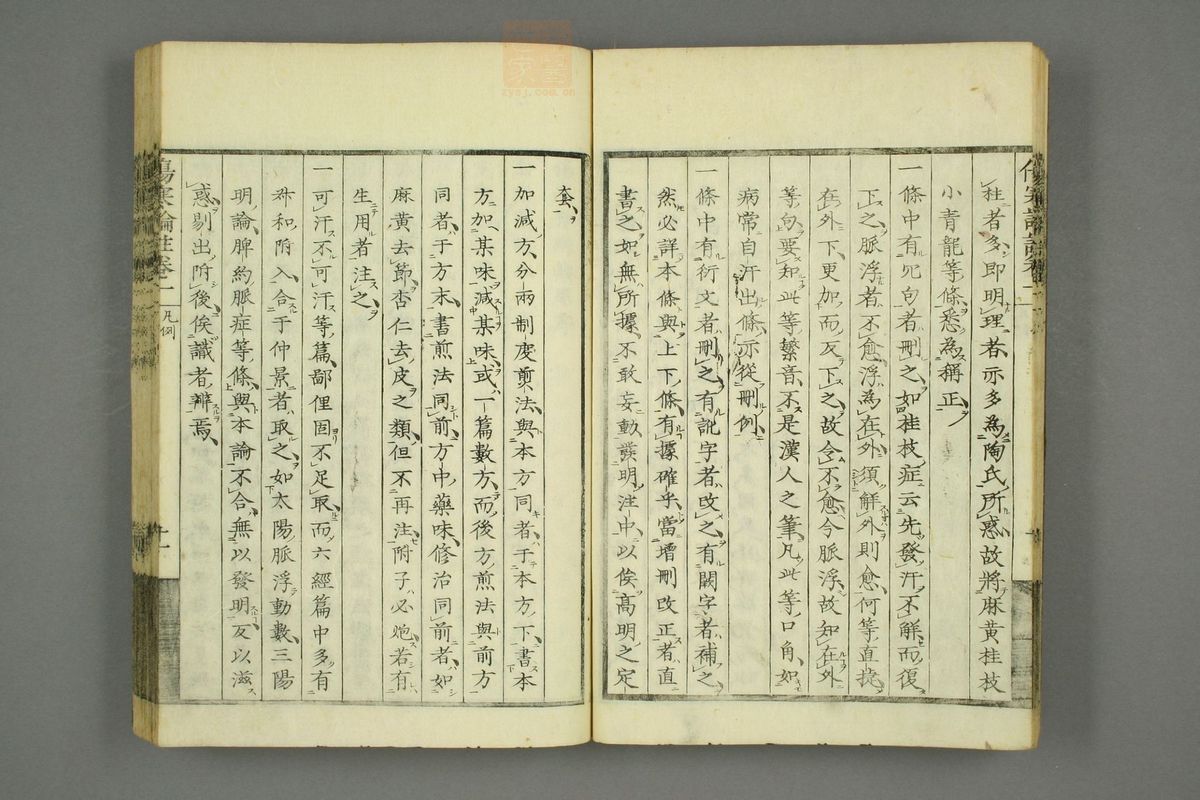 桂者多、即明理者、亦多為陶氏所惑故將麻黃桂枝
小青龍等條悉為稱正
一條中有冗句者刪之如桂枝症云先發汗不解而復
下之脈浮者不愈浮為在外須解外則愈何等直捷
在外下更加而反下之故令不愈今脈浮故知在外
等句要知此等繁音不是漢人之筆凡此等口角如
病常自汗出條亦從刪例
一條中有衍文者刪之有訛字者改之有闕字者補之
然必詳本條與上下條有據確乎當增刪改正者直
書之如無所據不敢妄動謹明注中以俟高明之定
奪
一加減方分兩制度煎法與本方同者于本方下書本
方加某味減某味或一篇數方而後方煎法與前方
同者于方末書煎法同前方中藥味修治同前者如
麻黃去節杏仁去皮之類但不再注附子必炮若有
生用者注之
一可汗不可汗等篇鄙俚固不足取而六經篇中多有
叔和附入合于仲景者取之如太陽脈浮動數三陽
明論脾約脈症等條與本論不合無以發明反以滋
惑剔出附後俟識者辨焉
傷寒論註卷一 凡例